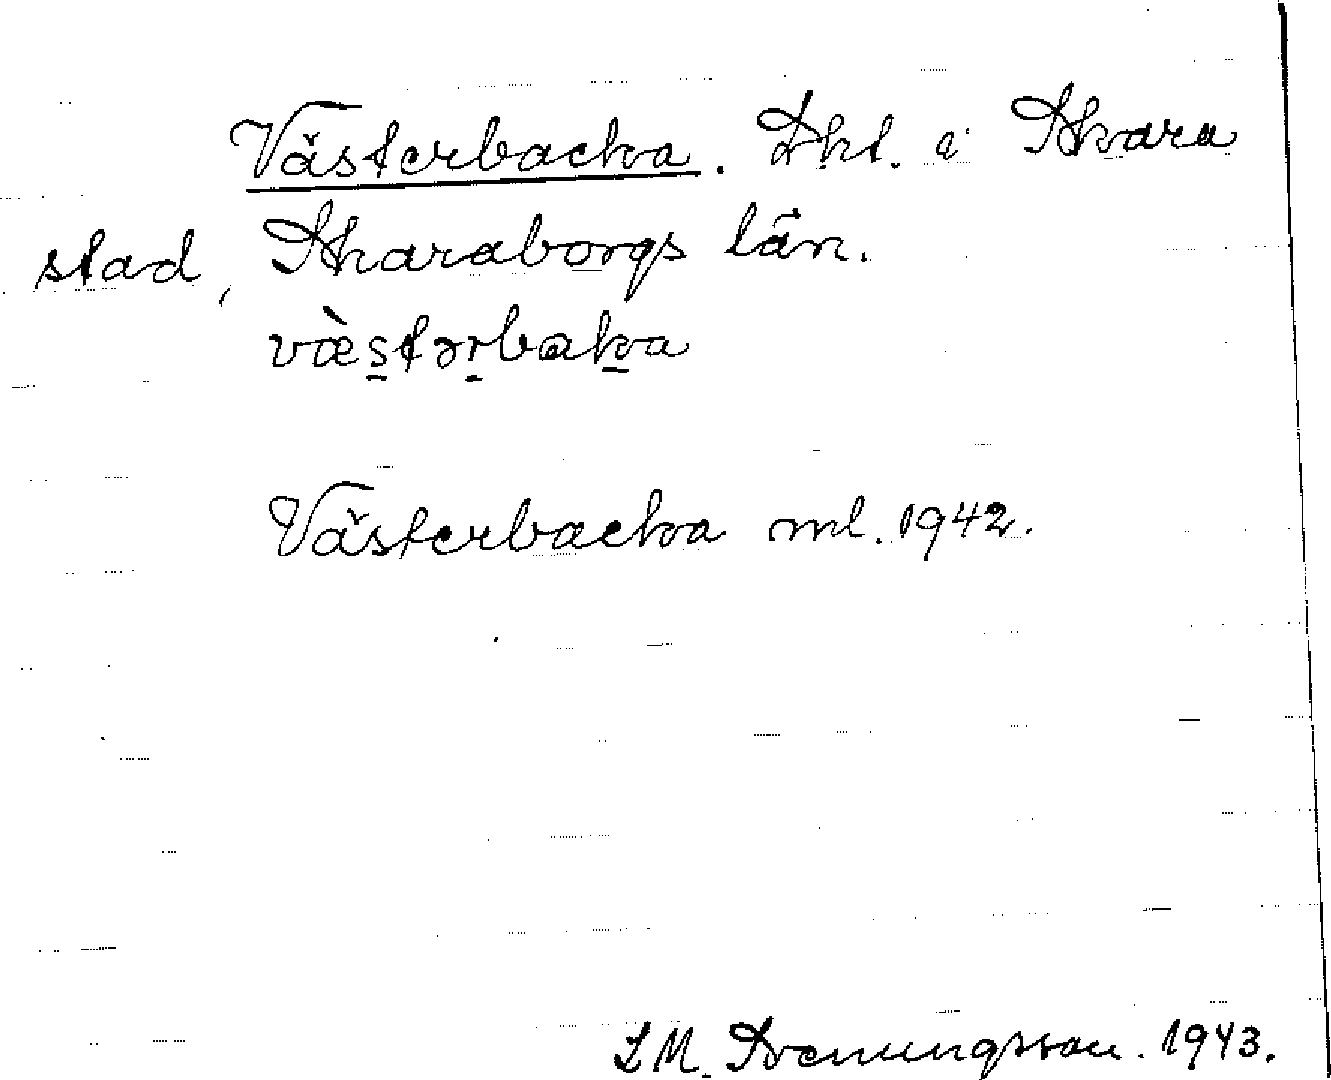 Västerbacka. Lht. i Skara
stad, Skaraborgs län.
væ̀s̱tər̠bak̠a
Västerbacka ml. 1942.
S M. Svenungsson. 1943.